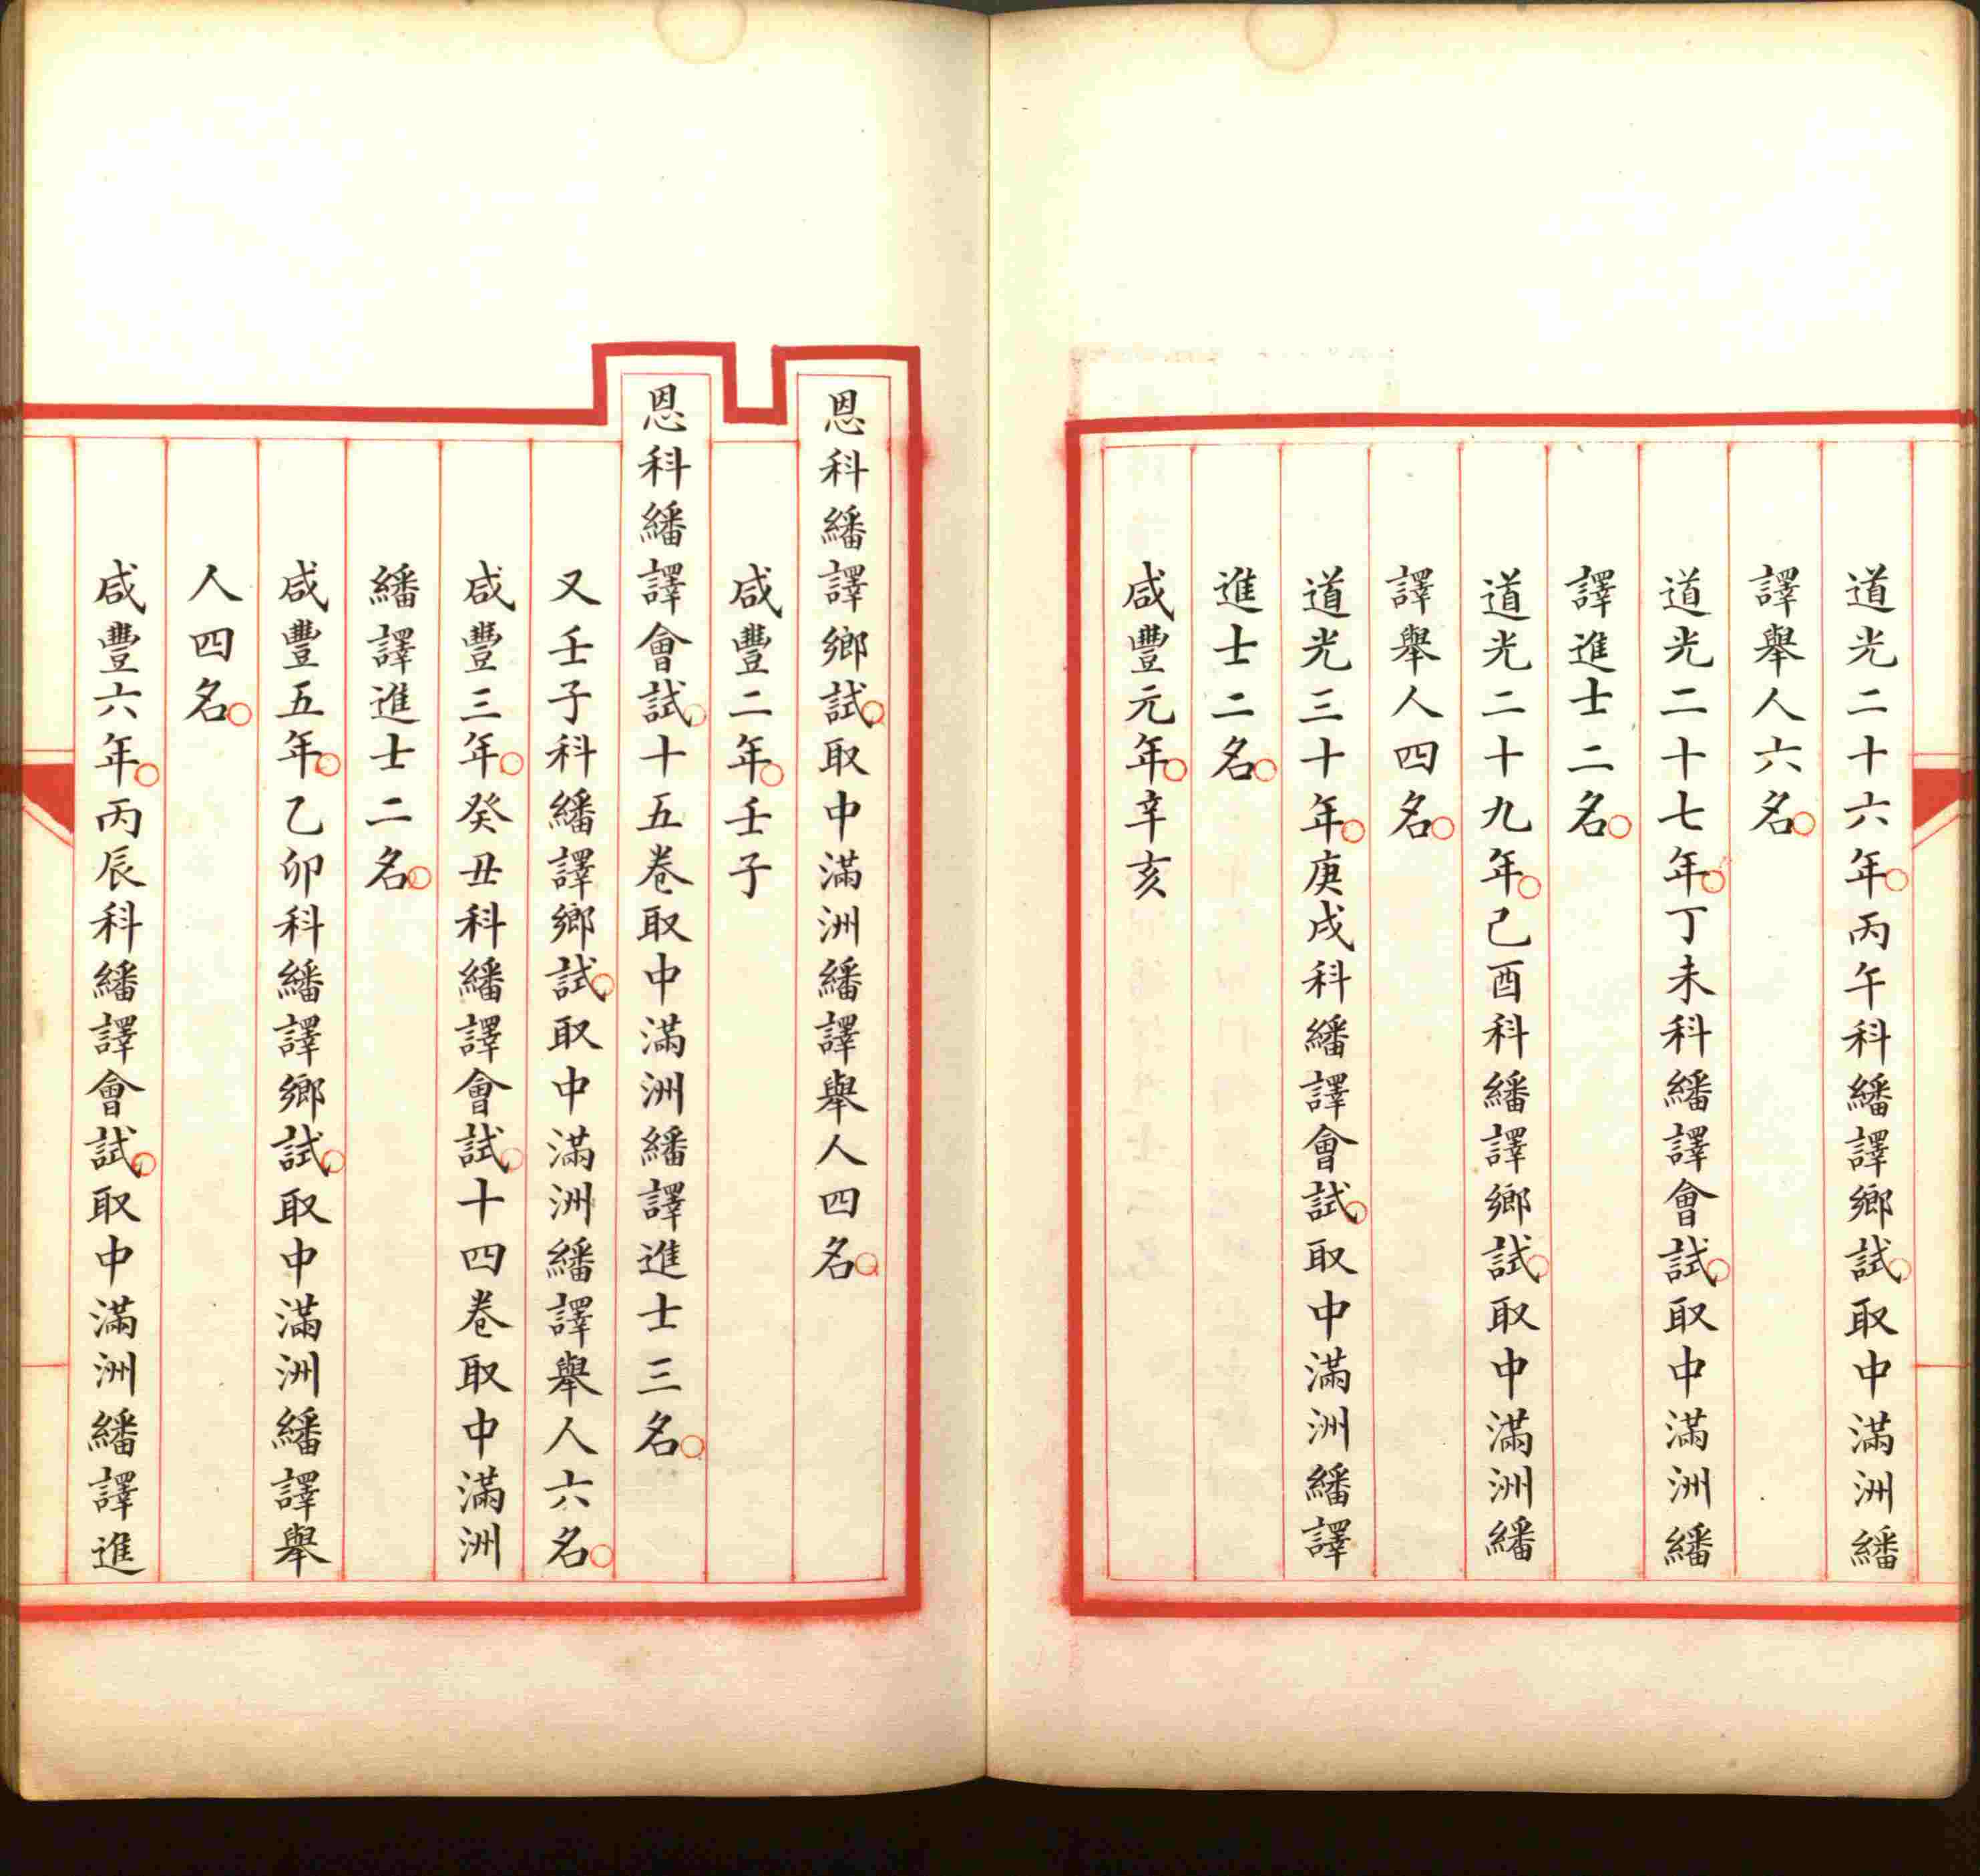 道光二十六年丙午科繙譯鄉試取中滿洲繙
譯舉人六名
道光二十七年丁未科繙譯會試取中滿洲繙
譯進士二名
道光二十九年己酉科繙譯鄉試取中滿洲繙
譯舉人四名
道光三十年庚戌科繙譯會試取中滿洲繙譯
進士二名
咸豐元年辛亥
恩科繙譯鄉試取中滿洲繙譯舉人四名
咸豐二年壬子
恩科繙譯會試十五卷取中滿洲繙譯進士三名
又壬子科繙譯鄉試取中滿洲繙譯舉人六名
咸豐三年癸丑科繙譯會試十四卷取中滿洲
繙譯進士二名
咸豐五年乙卯科繙譯鄉試取中滿洲繙譯舉
人四名
咸豐六年丙辰科繙譯會試取中滿洲繙譯進